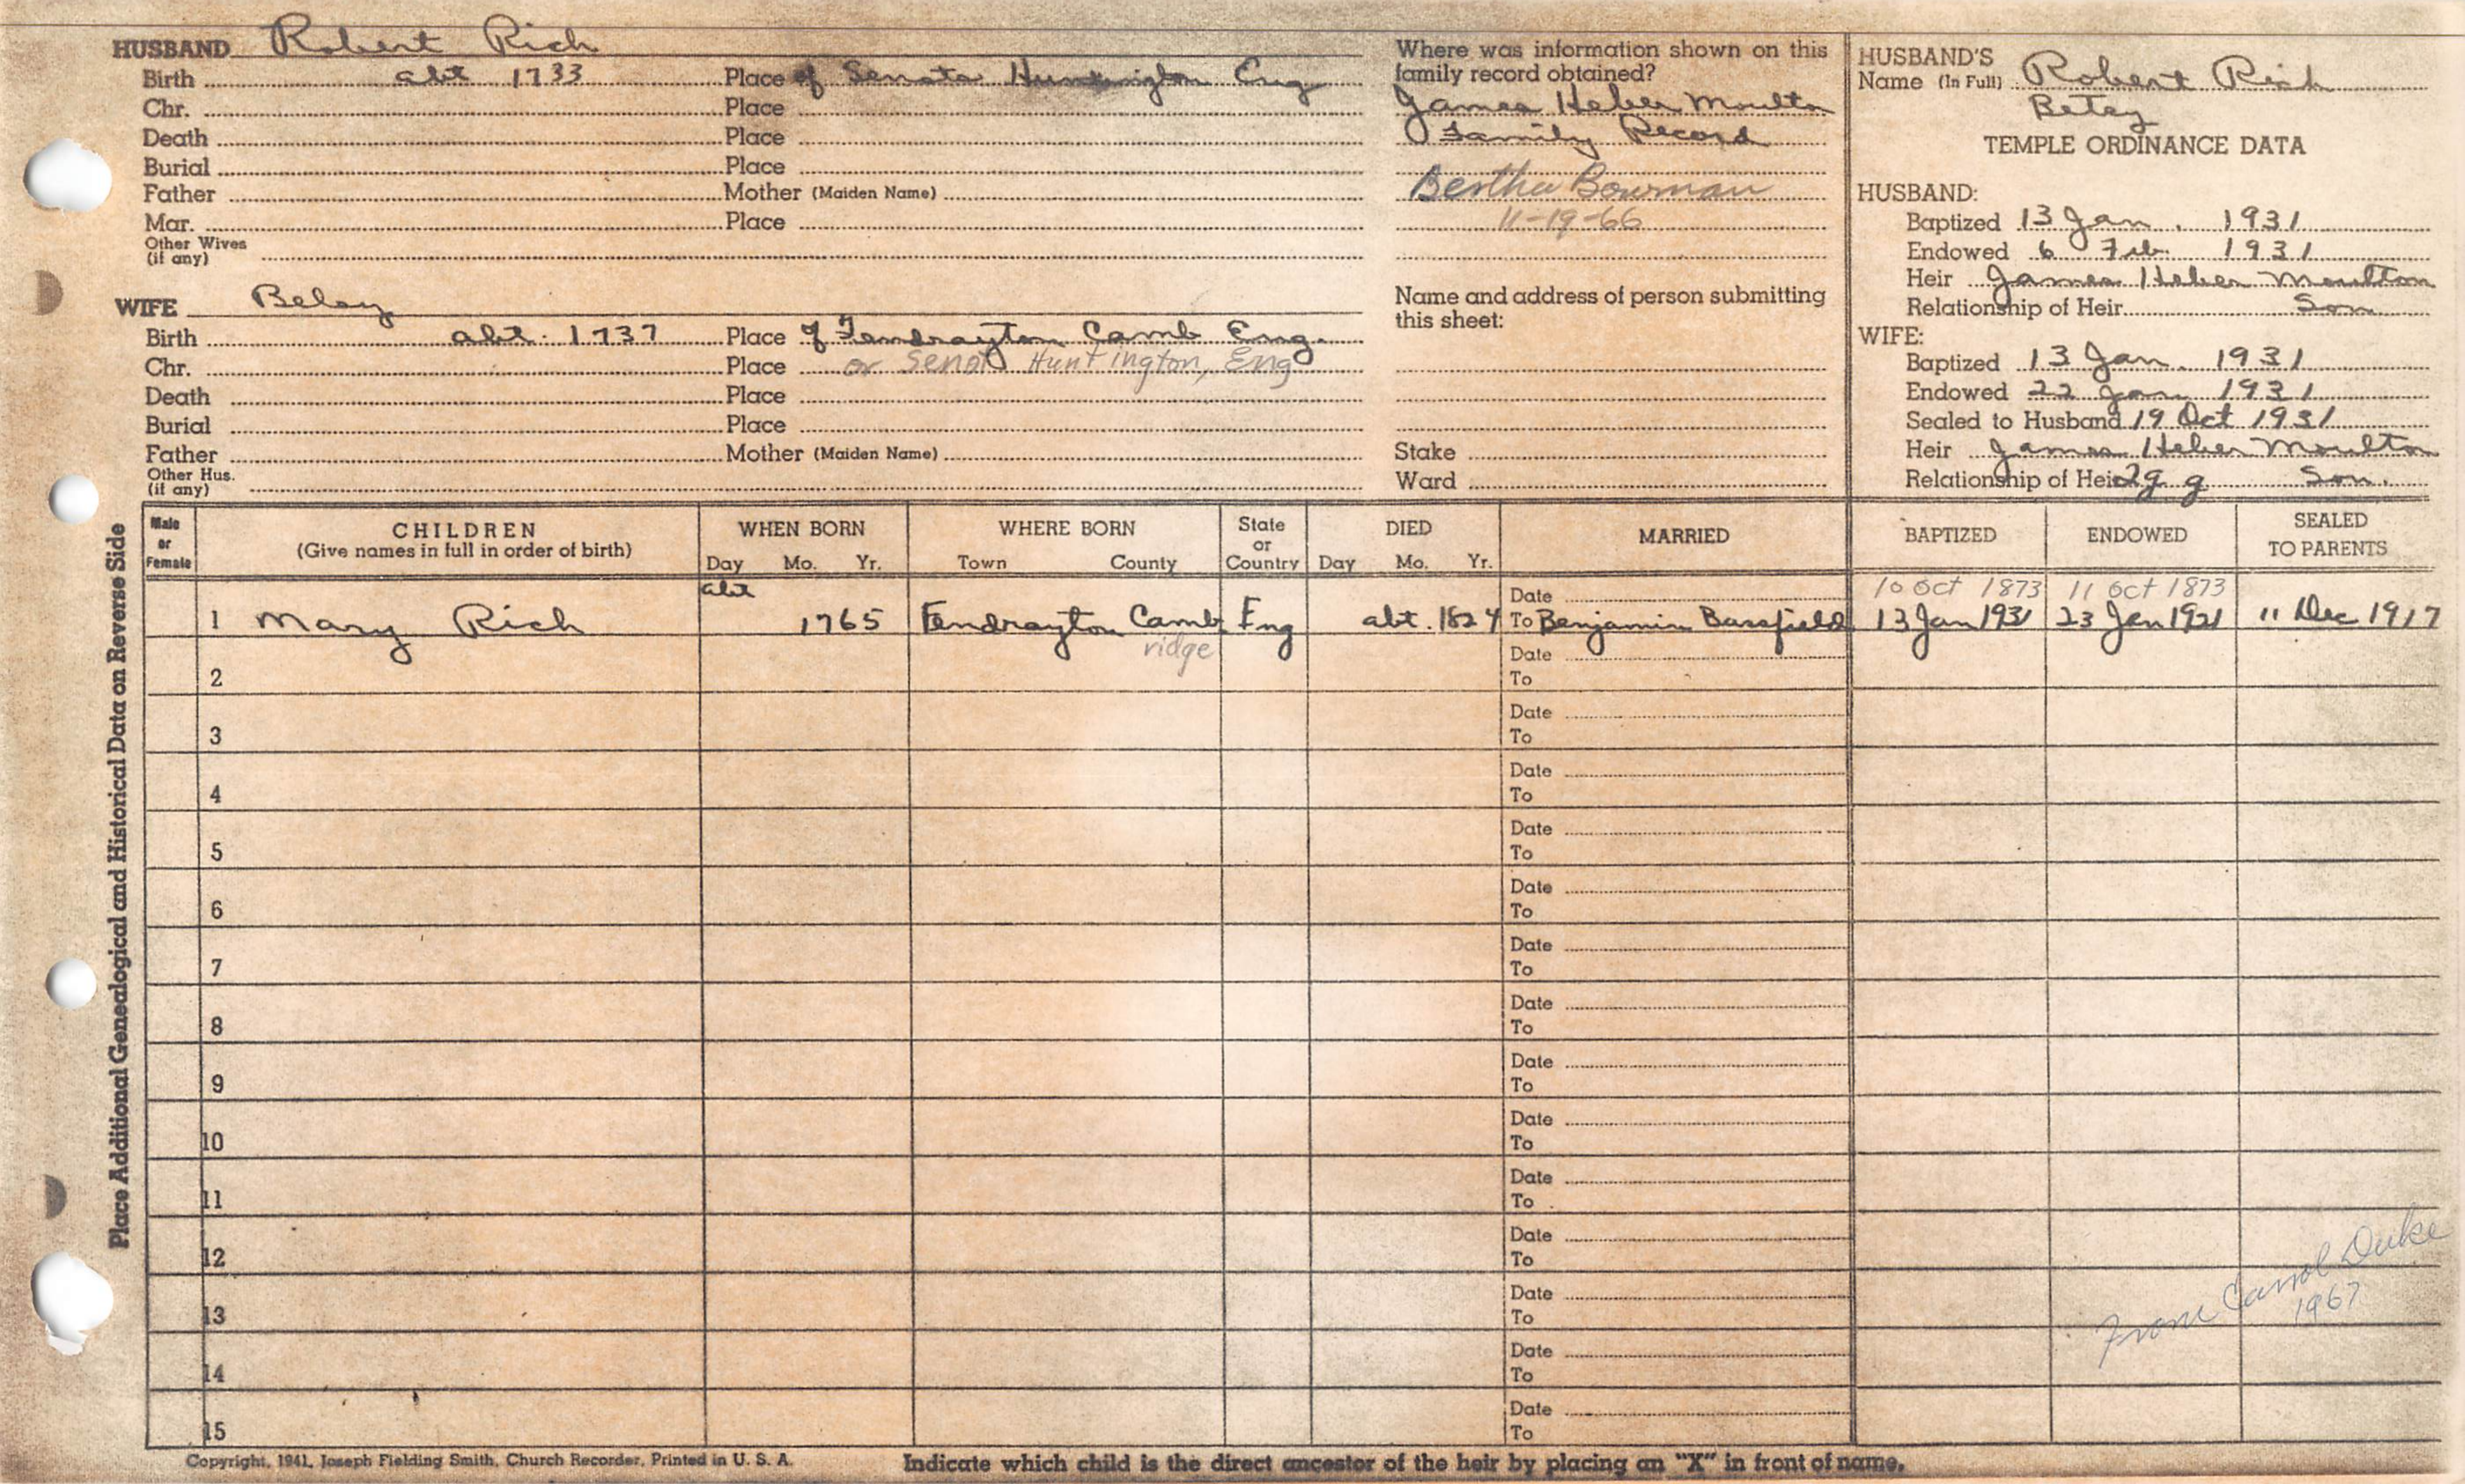 HUSBAND Robert Rich
Birth abt 1733 Place of Senata Huntington Eng
Chr. Place
Death Place
Burial Place
Father Mother (Maiden Name)
Mar. Place
Other Wives
(if any)
WIFE Betsy
Birth abt. 1737 Place of Fendrayton Camb Eng.
Chr. Place or Senot Huntington, Eng
Death Place
Burial Place
Father Mother (Maiden Name)
Other Hus.
(if any)
Where was information shown on this
family record obtained?
James Heber Moulton
Family Record
Bertha Bowman
11-19-66
Name and address of person submitting
this sheet:
Stake
Ward
HUSBAND'S
Name (In Full) Robert Rich
Betsy
TEMPLE ORDINANCE DATA
HUSBAND:
Baptized 13 Jan. 1931
Endowed 6 Feb 1931
Heir James Heber Moulton
Relationship of Heir Son
WIFE:
Baptized 13 Jan. 1931
Endowed 22 Jan 1931
Sealed to Husband 19 Oct 1931
Heir James Heber Moulton
Relationship of Heir 2g g Son.
Place Additional Genealogical and Historical Data on Reverse Side
Male
or
Female
CHILDREN
(Give names in full in order of birth)
WHEN BORN
Day Mo. Yr.
WHERE BORN
Town County
State
or
Country
DIED
Day Mo. Yr.
MARRIED
BAPTIZED
ENDOWED
SEALED
TO PARENTS
abt Date 10 Oct 1873 11 Oct 1873
1 Mary Rich 1765 Fendrayton Camb Eng abt. 1824 To Benjamin Bassfield 13 Jan 1931 23 Jan 1921 11 Dec 1917
ridge Date
2 To
Date
3 To
Date
4 To
Date
5 To
Date
6 To
Date
7 To
Date
8 To
Date
9 To
Date
10 To
Date
11 To
Date
12 To
Date
13 To
Date
14 To
Date
15 To
From Carrol Duke
1967
Copyright, 1941, Joseph Fielding Smith, Church Recorder, Printed in U. S. A.
Indicate which child is the direct ancestor of the heir by placing an "X" in front of name.